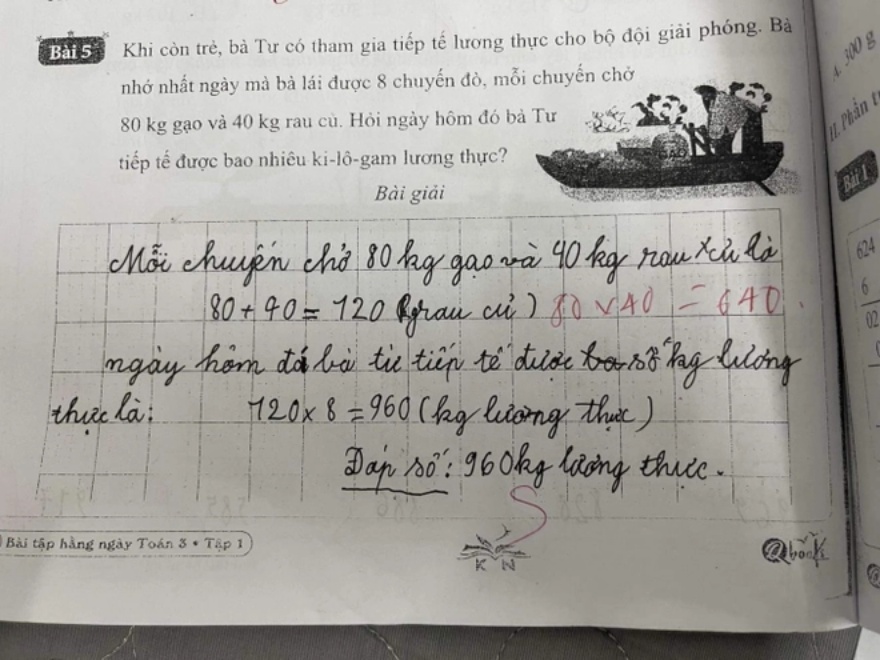 Bài 5 Khi còn trẻ, bà Tư có tham gia tiếp tế lương thực cho bộ đội giải phóng. Bà
nhớ nhất ngày mà bà lái được 8 chuyến đò, mỗi chuyến chở
80 kg gạo và 40 kg rau củ. Hỏi ngày hôm đó bà Tư
tiếp tế được bao nhiêu ki-lô-gam lương thực?
Bài giải
Mỗi chuyến chở 80 kg gạo và 40 kg rau củ là
80 + 40 = 120 (kg rau củ) 80 x 40 = 640.
ngày hôm đó bà tư tiếp tế được số kg lương
thực là: 120 x 8 = 960 (kg lương thực)
Đáp số: 960kg lương thực.
S
Bài tập hằng ngày Toán 3 • Tập 1
K N
@book
A. 300 g
II. Phần t
Bài 1
624
6
02